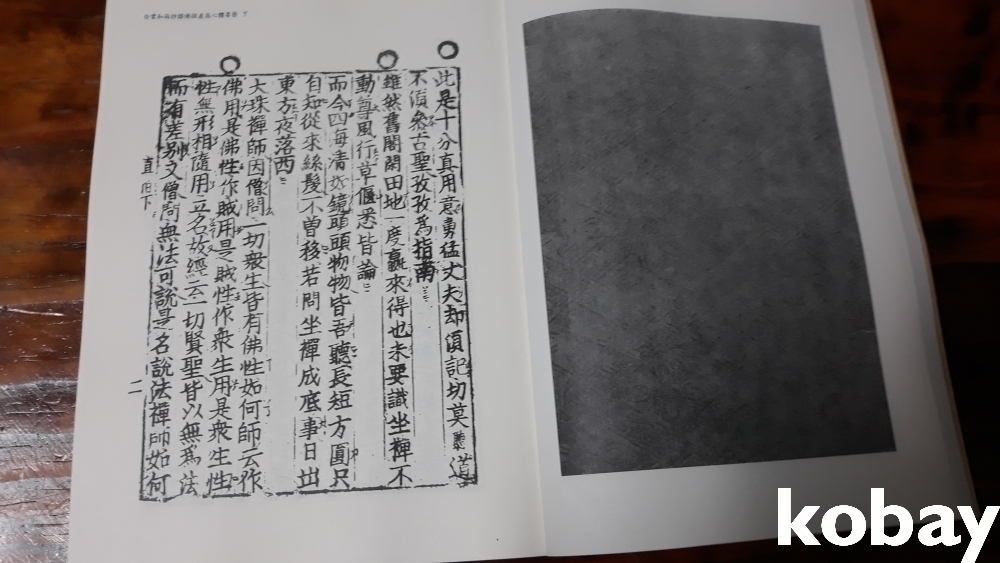 白雲和尚抄錄佛祖直指心體要節 下
此是十分真用意勇猛丈夫却須記切莫聽道
不須參古聖孜孜爲指南
雖然舊閣閑田地一度贏來得也未要識坐禪不
動尊風行草偃悉皆論
而今四海清如鏡頭頭物物皆吾聽長短方圓只
自知從來絲髮不曾移若問坐禪成底事日出
東方夜落西
大珠禪師因僧問一切衆生皆有佛性如何師云作
佛用是佛性作賊用是賊性作衆生用是衆生性
性無形相隨用立名故經云一切賢聖皆以無爲法
而有差別又僧問無法可說是名說法禪師如何
直旨下
二
kobay